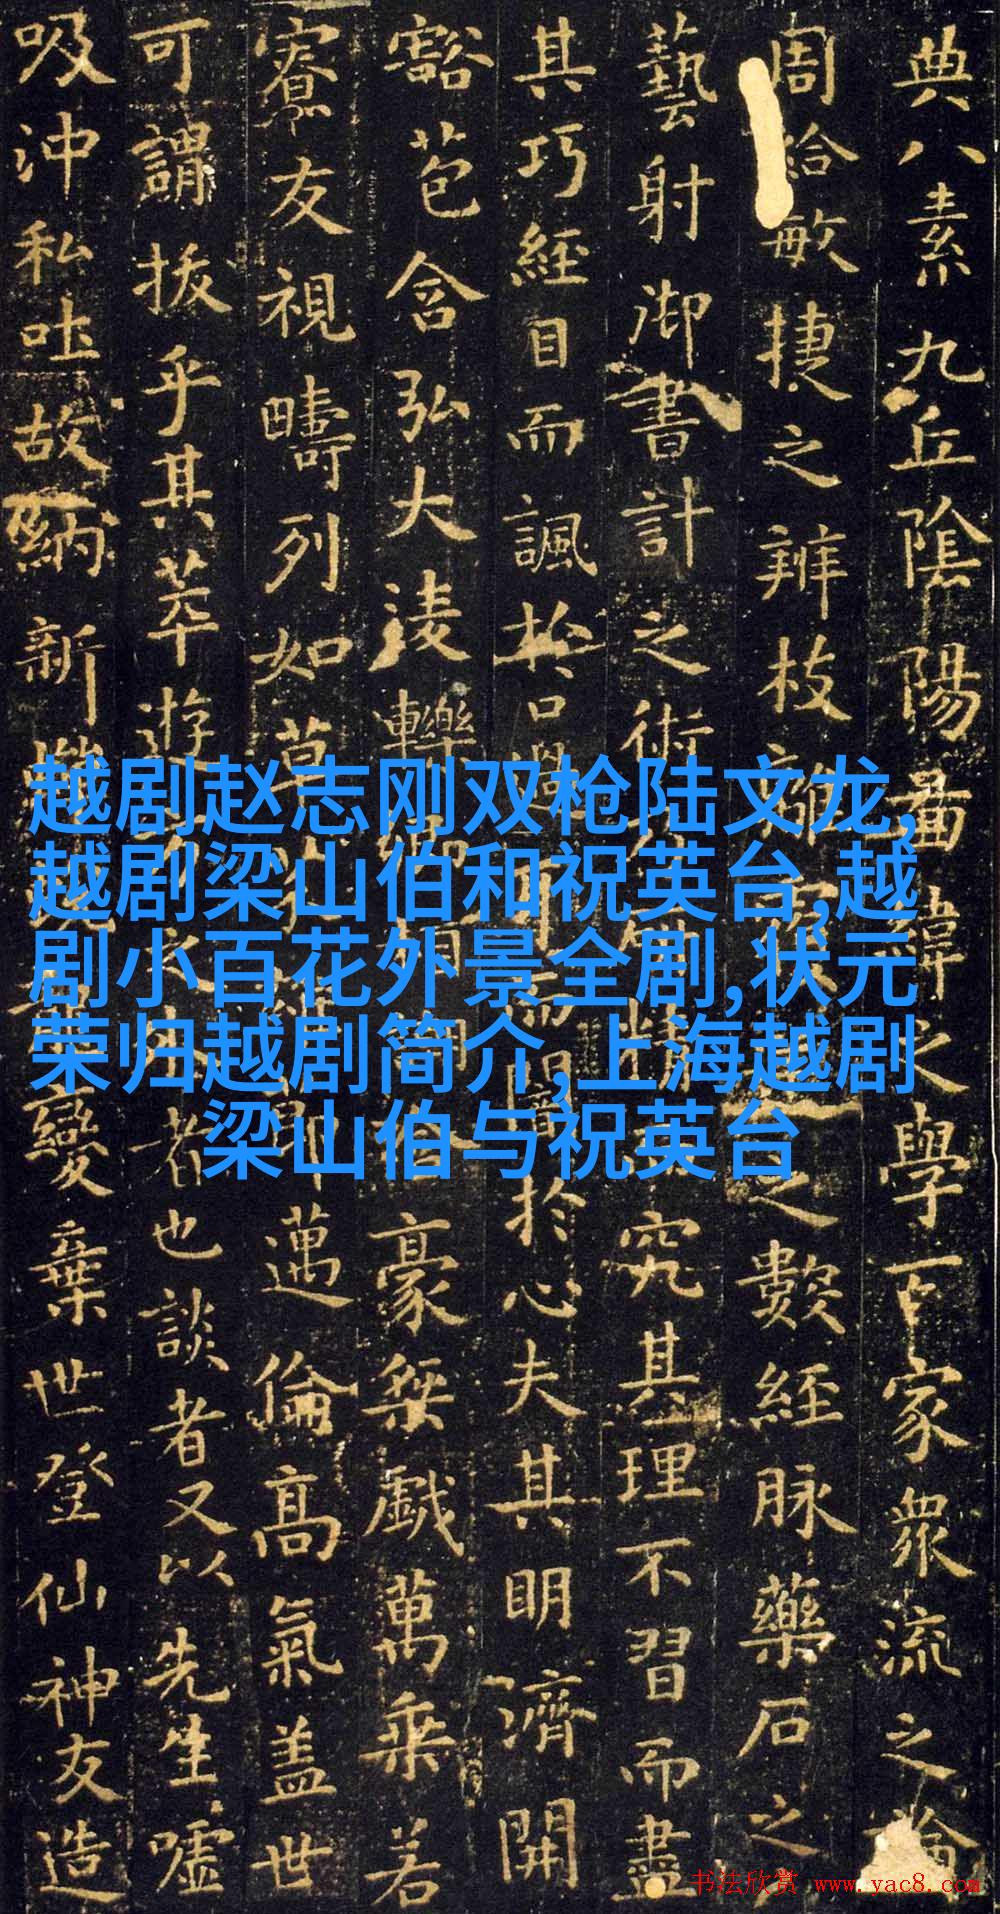 典八素九丘陰陽啚緯之學百家衆流之論
周給敏捷之辨枝離之數經脉藥石之
藝射御書計之術究其理不習而盡
其巧經目而諷於口過耳而於心夫其明濟開
豁苞含弘大淩轢豪桀戲萬乘若
寮友視疇列如草邁倫高氣蓋世
可謂拔乎其萃遊者也談者又以先生噓
吸沖和吐故納新變棄世登仙神友造
越剧赵志刚双枪陆文龙,
越剧梁山伯和祝英台,越
剧小百花外景全剧,状元
荣归越剧简介,上海越剧
梁山伯与祝英台
书法欣赏 www.yac8.com